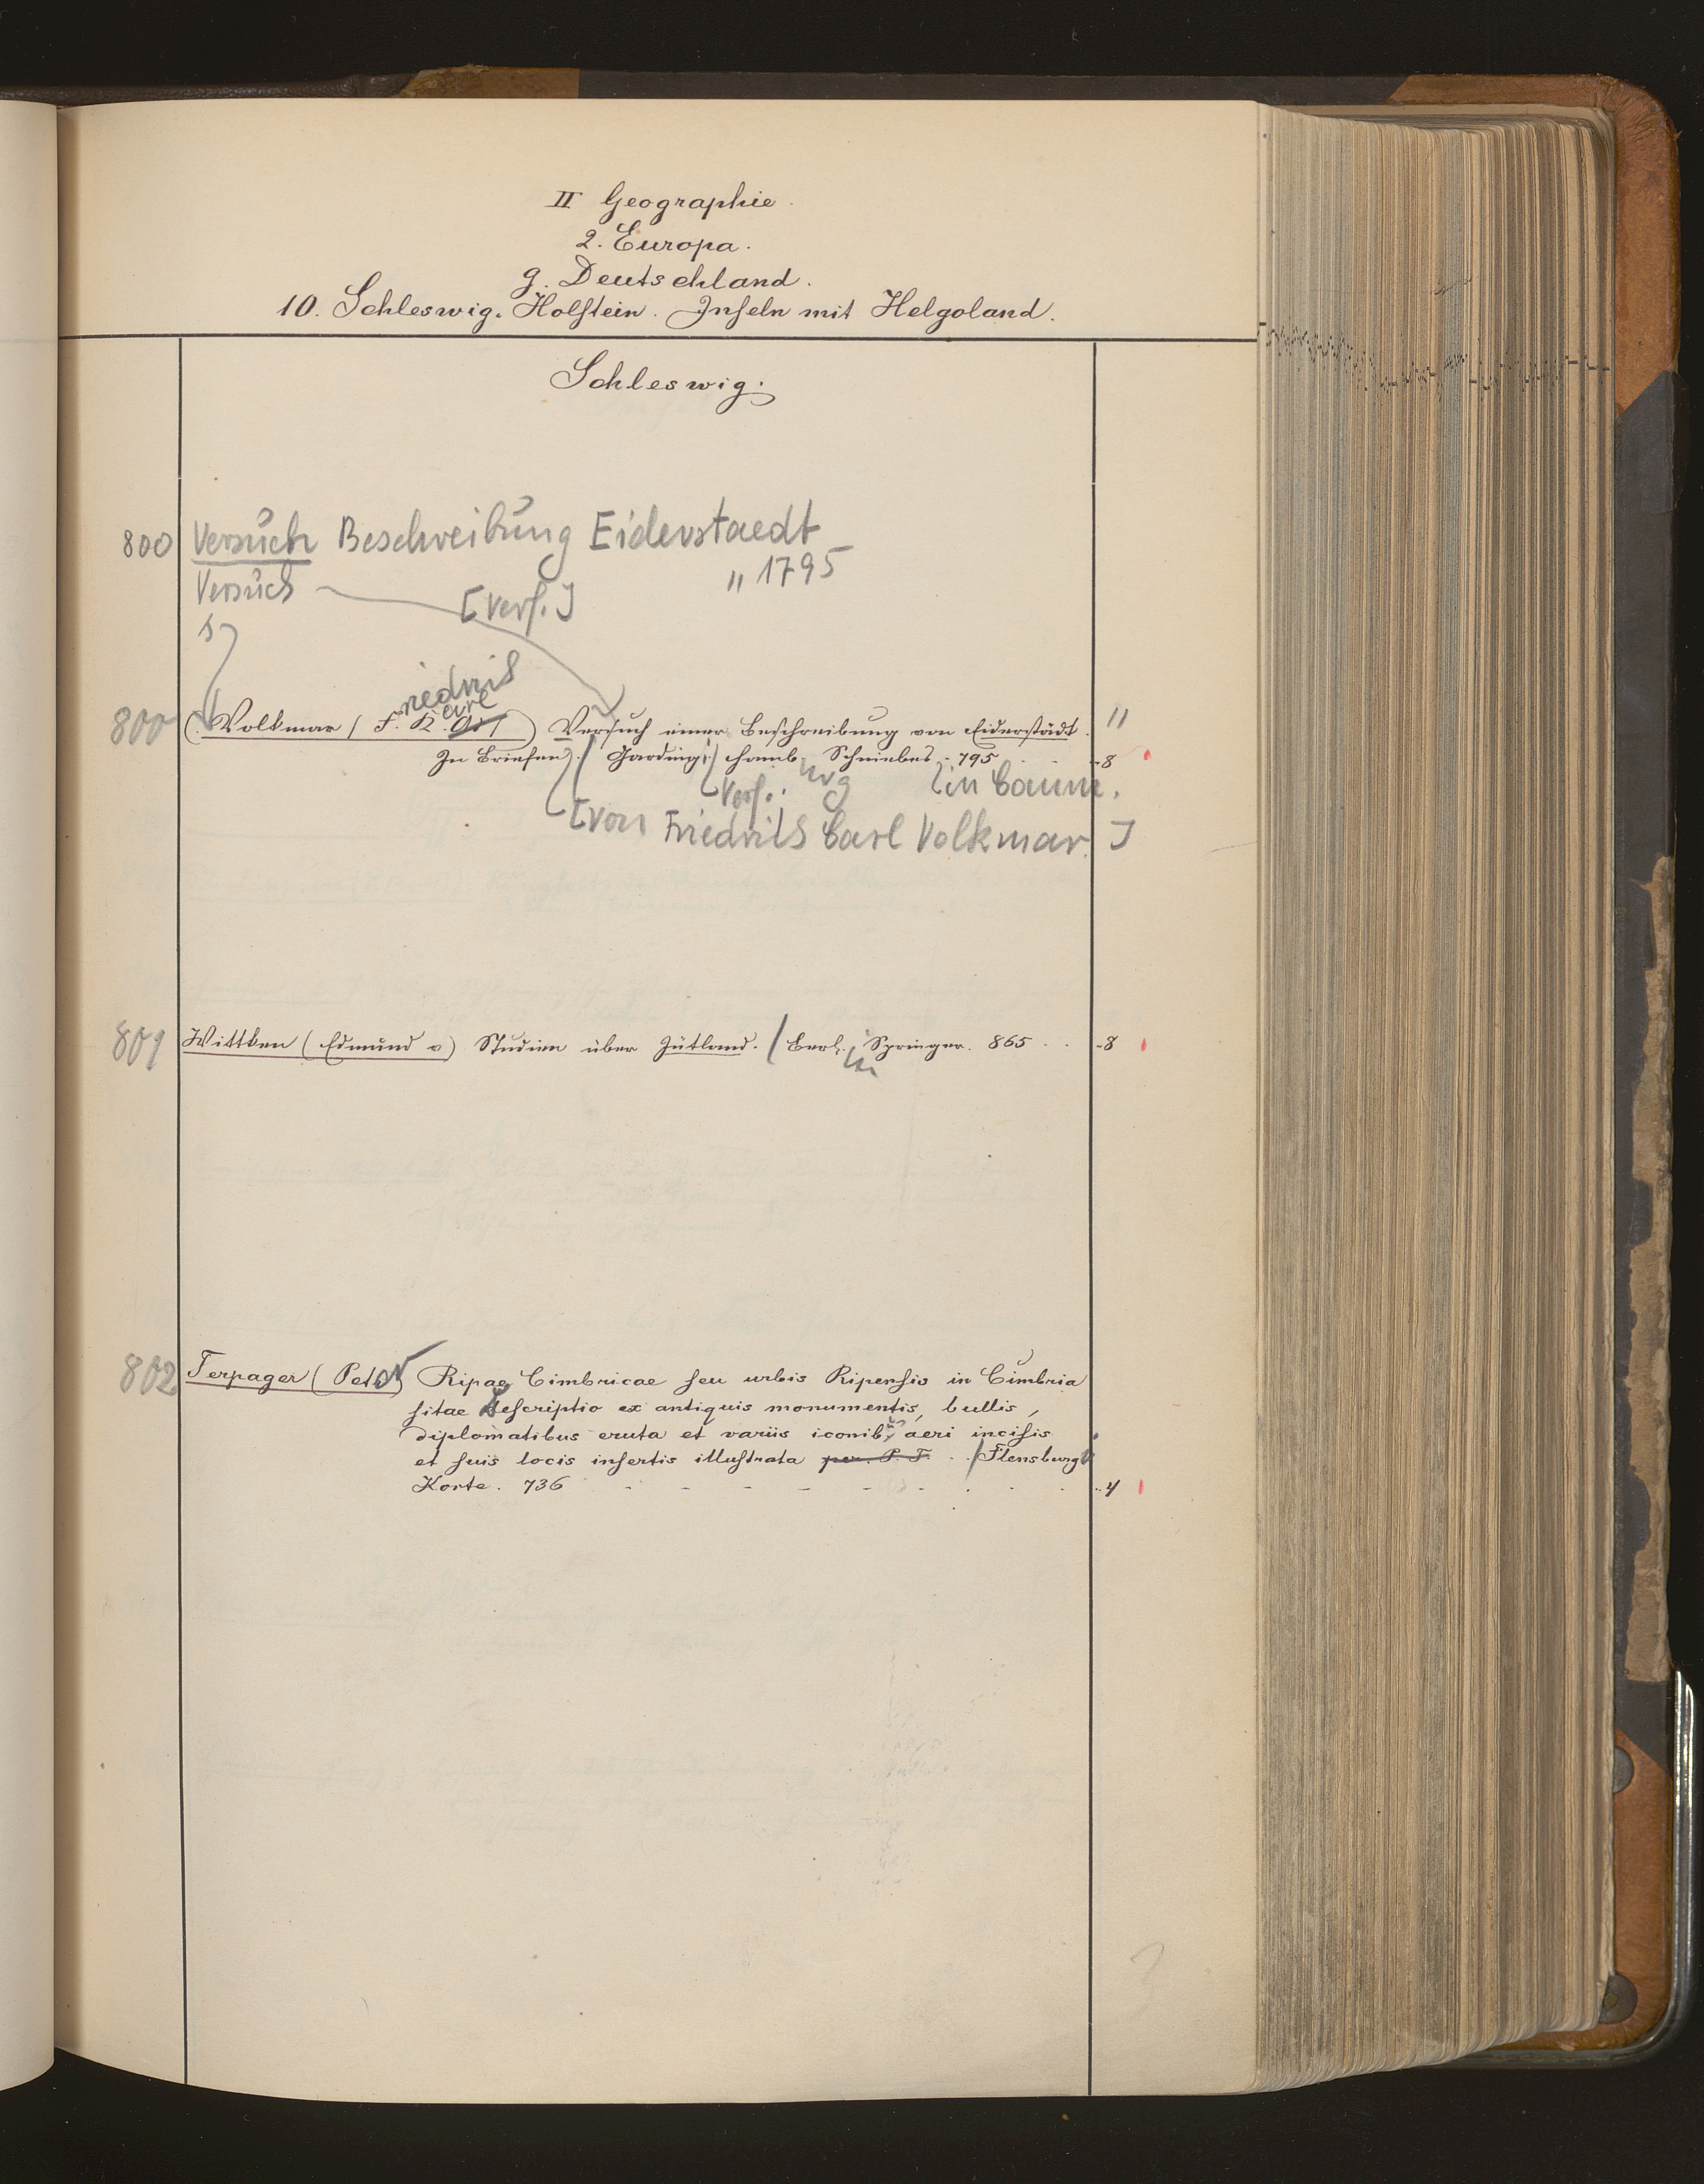 II Geographie.
2. Europa.
g. Deutschland.
10. Schleswig-Holstein. Inseln mit Helgoland.
Schleswig.
800 Versuch Beschreibung Eiderstaedt
" 1795
Versuch [Verf.]
riedrich
arl
800 (Volkmar (F. K. ) Versuch einer Beschreibung von Eiderstädt. "
In Briefen). (Garding:) Hamb. Schniebes. 795 8
Verf.: urg in Comm.
[von Friedrich Carl Volkmar.]
801 Wittken (Edmund v) Studien über Jütland. / Berl. Springer. 865 . . 8
in
802 Terpager (Peter) Ripae Cimbricae seu urbis Ripensis in Cimbria
sitae Descriptio ex antiquis monumentis, bullis,
diplomatibus eruta et variis iconib, us aeri incisis
et suis locis insertis illustrata per. P. T. . . / Flensburgi
Korte. 736 4